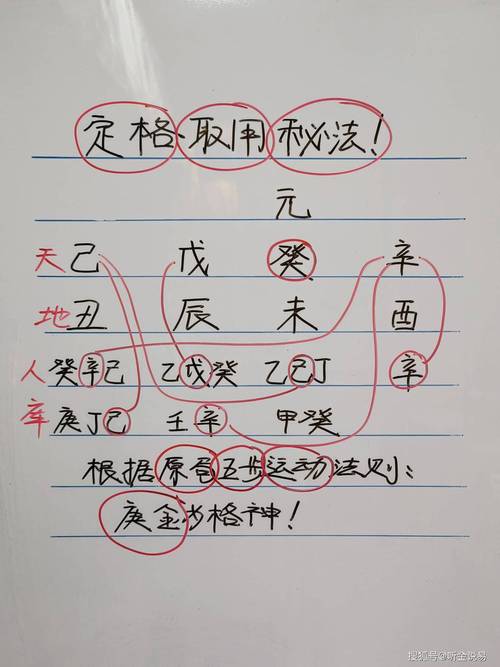 定格·取用秘法！
元
天 己 戊 癸 辛
地 丑 辰 未 酉
人 癸辛己 乙戊癸 乙己丁 辛
库 庚丁己 壬辛 甲癸
根据原局五步运动法则：
庚金为格神！
搜狐号@听全说易